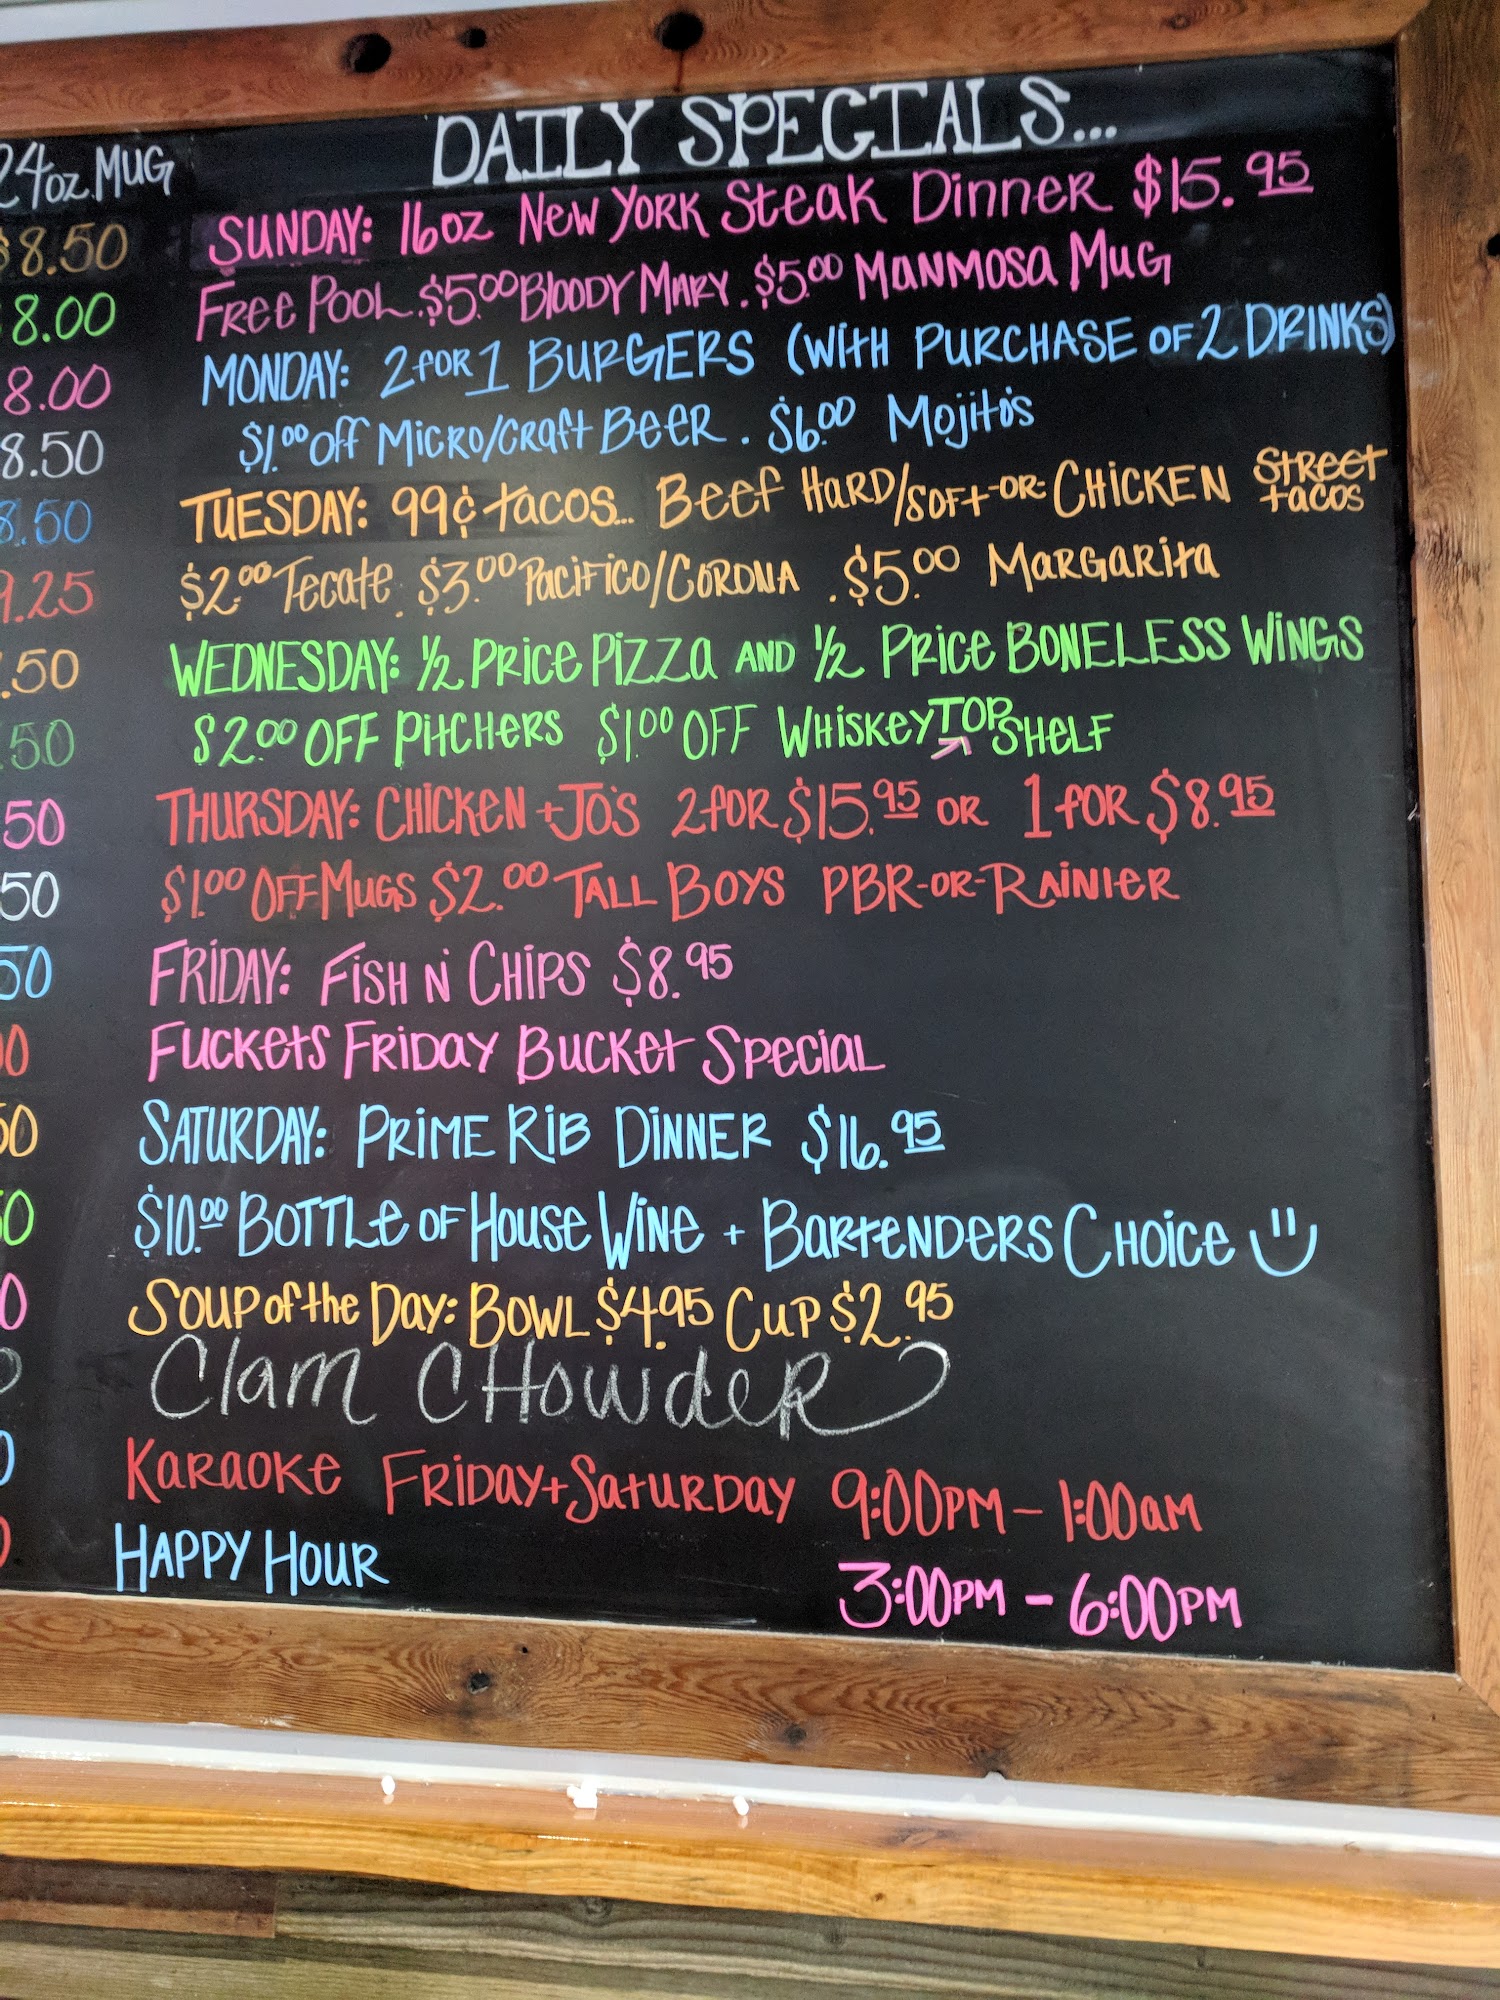 DAILY SPECIALS...
24oz. MUG
$8.50
8.00
8.00
8.50
8.50
9.25
.50
.50
50
50
50
00
50
50
0
0
0
0
SUNDAY: 16oz New York Steak Dinner $15.95
Free Pool. $5.00 Bloody Mary. $5.00 Manmosa Mug
MONDAY: 2 for 1 BURGERS (WITH PURCHASE OF 2 DRINKS)
$1.00 off Micro/Craft Beer. $6.00 Mojito's
TUESDAY: 99¢ tacos... Beef Hard/Soft -or- CHICKEN Street tacos
$2.00 Tecate. $3.00 Pacifico/Corona. $5.00 Margarita
WEDNESDAY: 1/2 Price Pizza AND 1/2 Price BONELESS WINGS
$2.00 OFF PitCHERS $1.00 OFF Whiskey TOP SHELF
THURSDAY: CHICKEN + Jo's 2 for $15.95 or 1 for $8.95
$1.00 OFF Mugs $2.00 TALL BOYS PBR -or- RAINIER
FRIDAY: FISH N' CHIPS $8.95
Fuckets Friday Bucket Special
SATURDAY: PRIME RIB DINNER $16.95
$10.00 BOTTLE OF House Wine + BARTENDERS CHOICE
Soup of the Day: Bowl $4.95 Cup $2.95
Clam CHOWDER
KARAOKE FRIDAY + SATURDAY 9:00PM - 1:00AM
HAPPY HOUR 3:00PM - 6:00PM